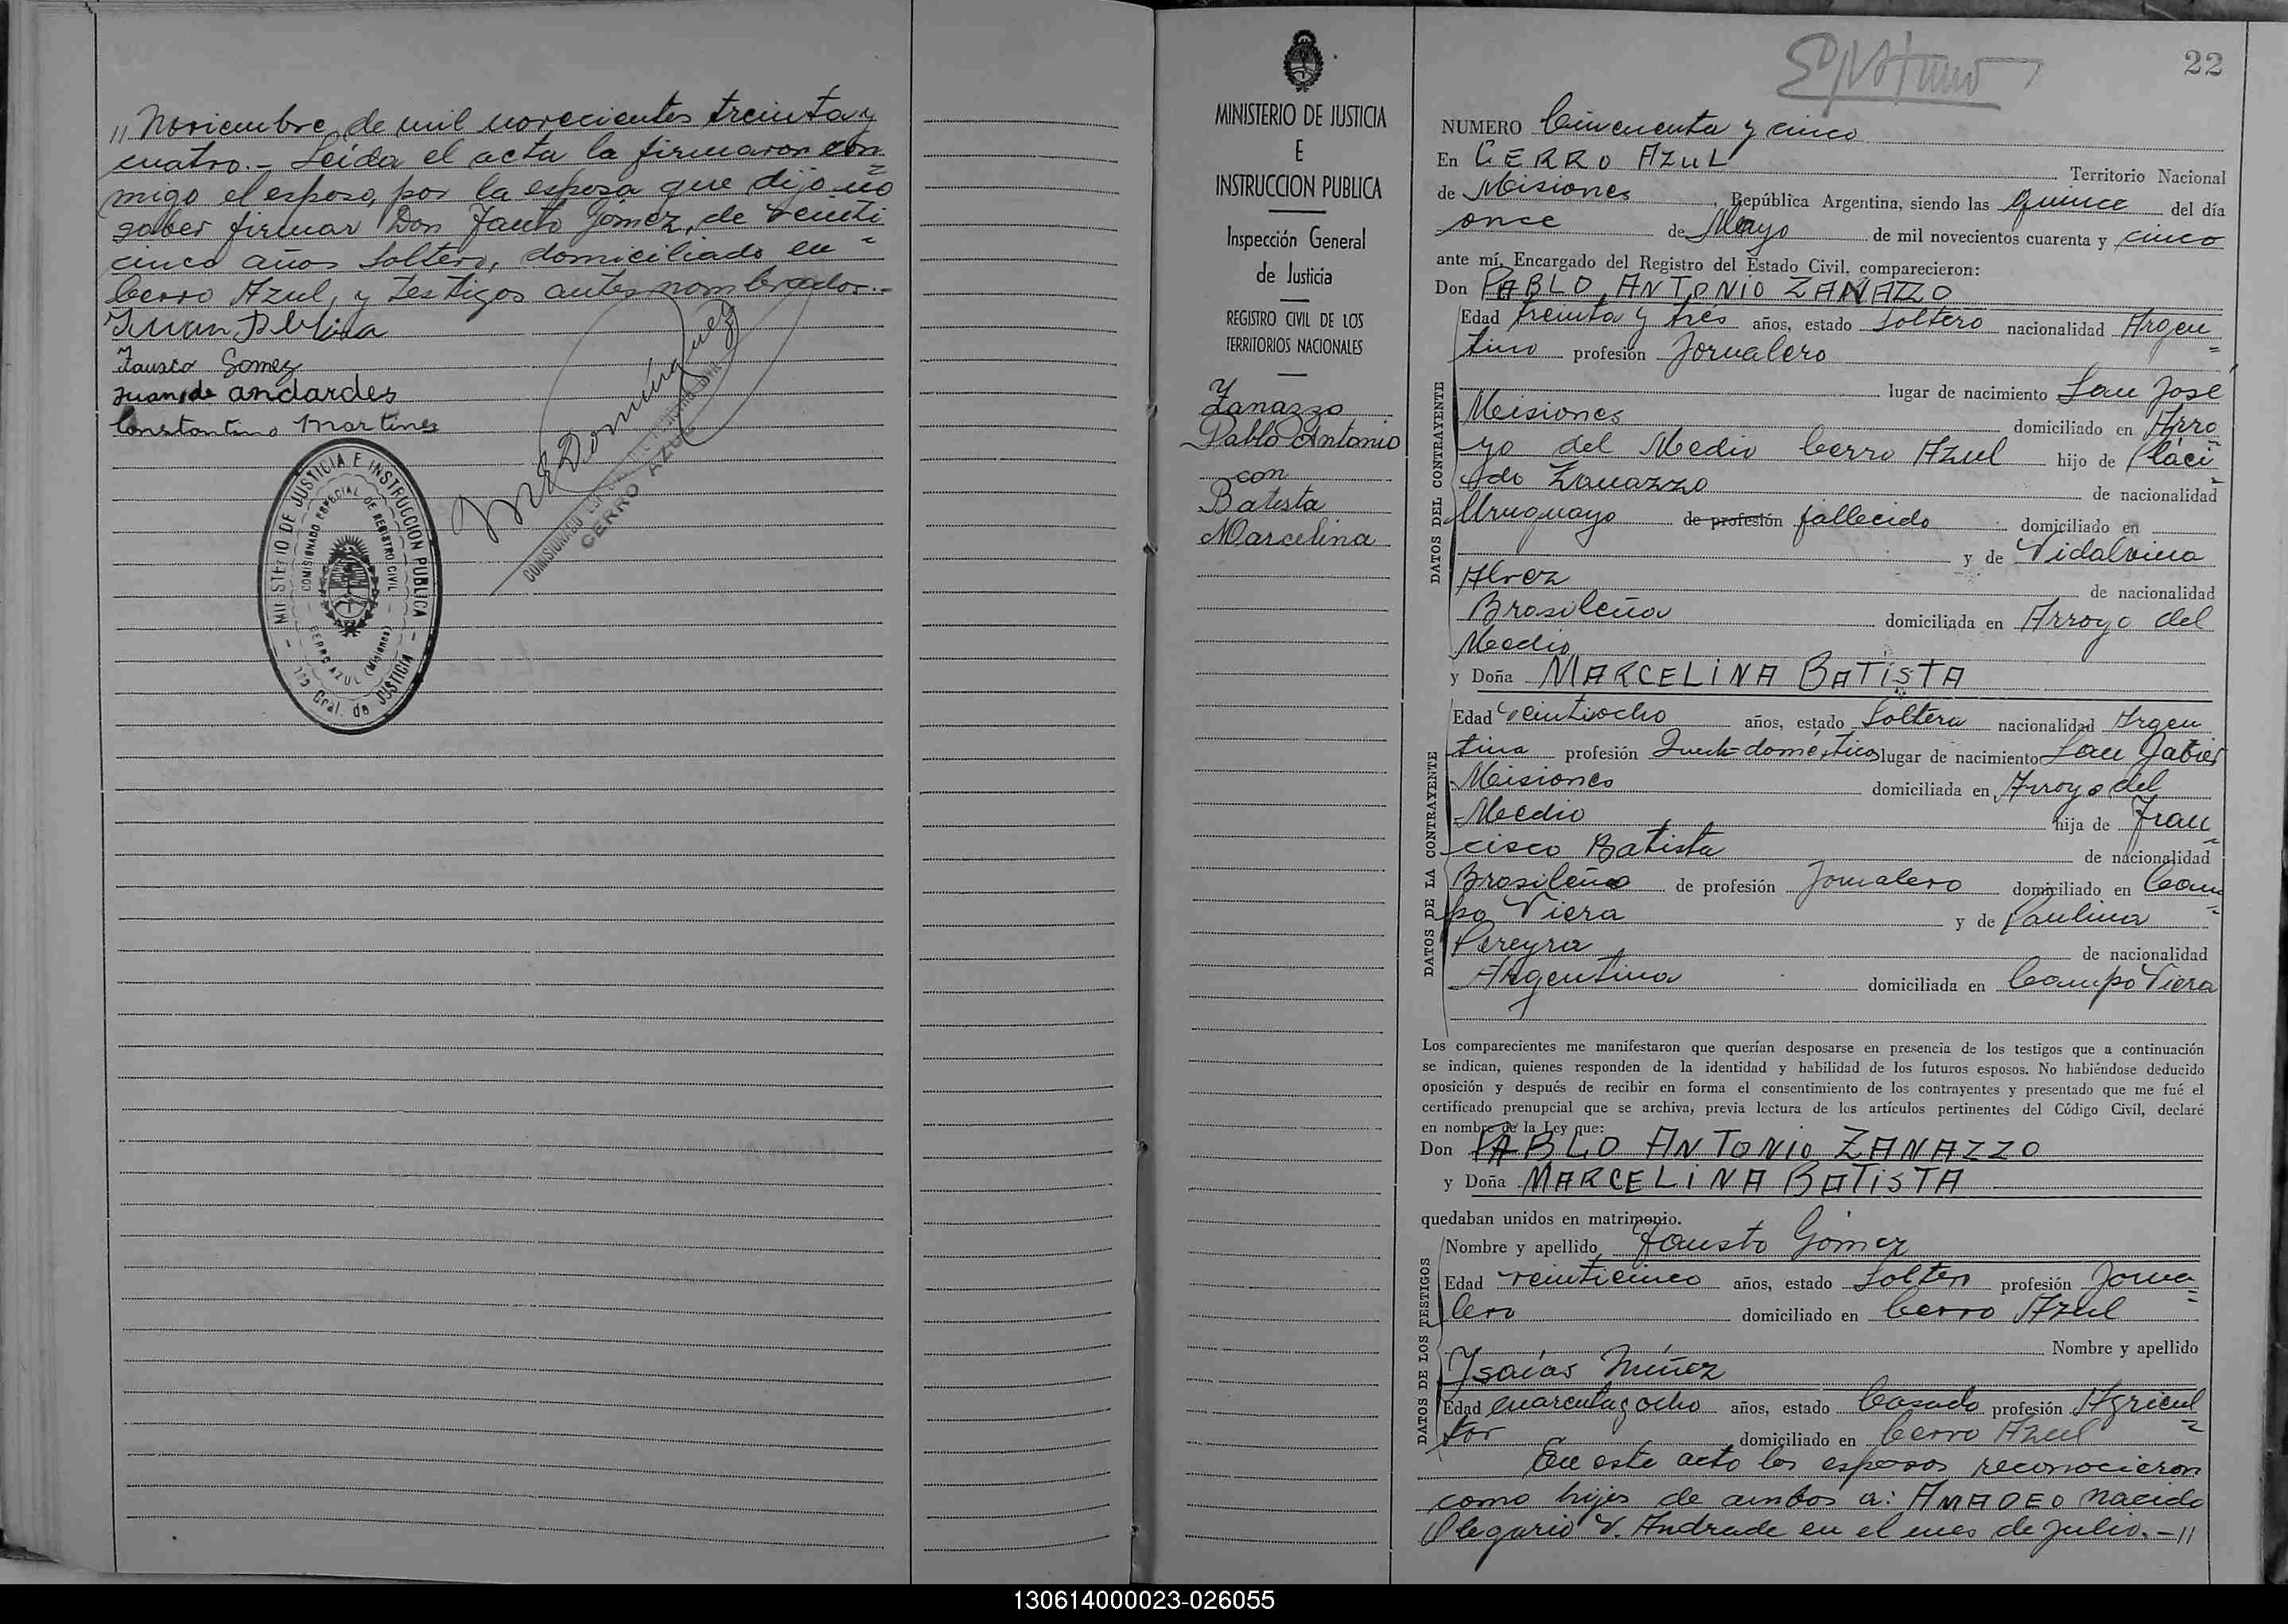 // Noviembre de mil novecientos treinta y
cuatro.- Leída el acta la firmaron con
migo el esposo, por la esposa que dijo no
saber firmar Don Fausto Gómez, de veinti
cinco años soltero, domiciliado en
Cerro Azul, y testigos antes nombrados.-
Juan
Fausto Gomez
Juan de andardes
Constantino Martines
M E Dominguez
COMISIONADO
CERRO AZUL
MINISTERIO DE JUSTICIA E INSTRUCCION PUBLICA
COMISIONADO ESPECIAL DE REGISTRO CIVIL
CERRO AZUL (Misiones)
Gral. de JUSTICIA
MINISTERIO DE JUSTICIA
E
INSTRUCCION PUBLICA
Inspección General
de Justicia
REGISTRO CIVIL DE LOS
TERRITORIOS NACIONALES
Y
Zanazzo
Pablo Antonio
con
Batista
Marcelina
22
NUMERO Cincuenta y cinco
En CERRO AZUL Territorio Nacional
de Misiones, República Argentina, siendo las Quince del día
once de Mayo de mil novecientos cuarenta y cinco
ante mí, Encargado del Registro del Estado Civil, comparecieron:
Don PABLO ANTONIO ZANAZZO
DATOS DEL CONTRAYENTE
Edad treinta y tres años, estado Soltero nacionalidad Argen
tino profesión Jornalero
lugar de nacimiento San José
Misiones domiciliado en Arro
yo del Medio Cerro Azul hijo de Pláci
do Zanazzo de nacionalidad
Uruguayo de profesión fallecido domiciliado en
y de Vidalvina
Alvez de nacionalidad
Brasileña domiciliada en Arroyo del
Medio
y Doña MARCELINA BATISTA
DATOS DE LA CONTRAYENTE
Edad veintiocho años, estado Soltera nacionalidad Argen
tina profesión Queh-domésticos lugar de nacimiento San Javier
Misiones domiciliada en Arroyo del
Medio hija de Fran
cisco Batista de nacionalidad
Brasileño de profesión Jornalero domiciliado en Cam
po Viera y de Paulina
Pereyra de nacionalidad
Argentina domiciliada en Campo Viera
Los comparecientes me manifestaron que querían desposarse en presencia de los testigos que a continuación
se indican, quienes responden de la identidad y habilidad de los futuros esposos. No habiéndose deducido
oposición y después de recibir en forma el consentimiento de los contrayentes y presentado que me fué el
certificado prenupcial que se archiva, previa lectura de los artículos pertinentes del Código Civil, declaré
en nombre de la Ley que:
Don PABLO ANTONIO ZANAZZO
y Doña MARCELINA BATISTA
quedaban unidos en matrimonio.
DATOS DE LOS TESTIGOS
Nombre y apellido Fausto Gómez
Edad veinticinco años, estado Soltero profesión Jorna
lero domiciliado en Cerro Azul
Nombre y apellido
Isaías Núñez
Edad cuarenta y ocho años, estado Casado profesión Agricul
tor domiciliado en Cerro Azul
En este acto los esposos reconocieron
como hijos de ambos a: AMADEO nacido
Olegario V. Andrade en el mes de Julio.-//
130614000023-026055